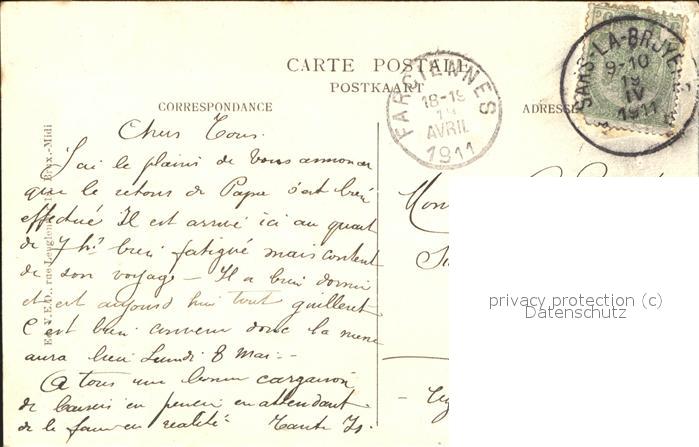 CARTE POSTALE
POSTKAART
CORRESPONDANCE
ADRESSE
SARS-LA-BRUYERE
9-10
19
IV
1911
FARCIENNES
18-19
19
AVRIL
1911
Chers Tous.
J'ai le plaisir de vous annoncer
que le retour de Papa s'est bien
effectué Il est arrivé ici au quart
de 7 h.s bien fatigué mais content
de son voyage — Il a bien dormi
et est aujourd'hui tout guilleret
C est bien convenu donc la
aura lieu Lundi 8 Mai. -
A tous une bonne cargaison
de baisers en pensée en attendant
de le faire en réalité. Tante
Mon
privacy protection (c)
Datenschutz
Brux.-Midi